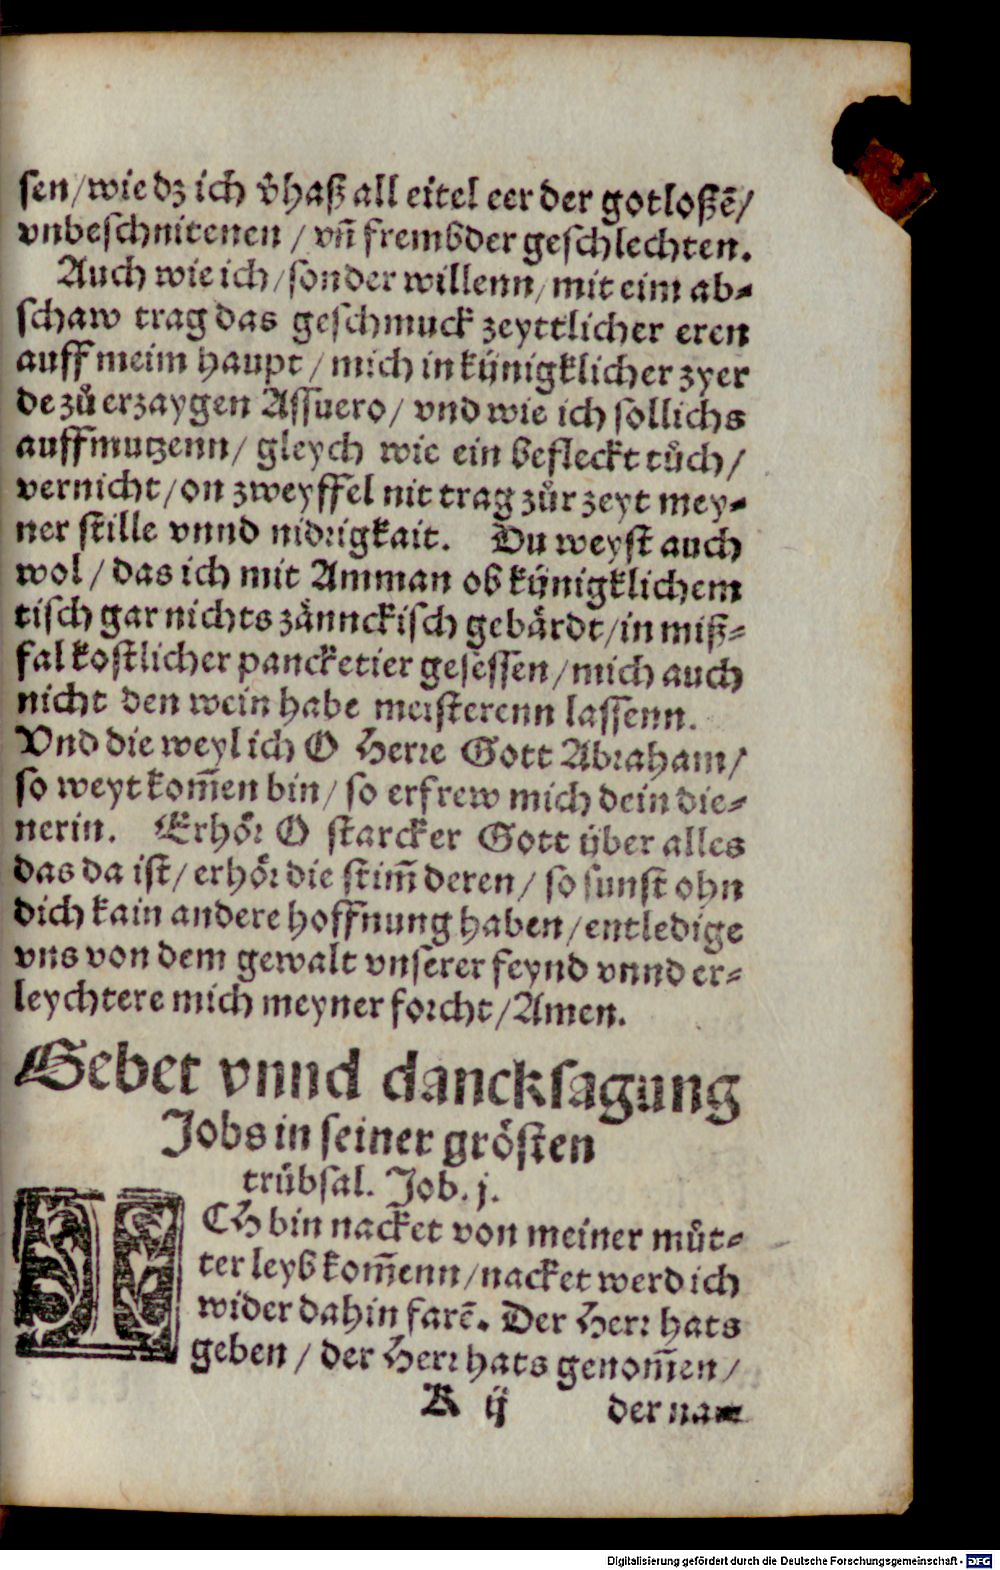 sen/wie dz ich v̊haß all eitel eer der gotloßẽ/
vnbeschnitenen / vñ frembder geschlechten.
Auch wie ich/sonder willenn/mit eim ab⸗
schaw trag das geschmuck zeyttlicher eren
auff meim haupt / mich in künigklicher zyer
de zů erzaygen Assuero/ vnd wie ich sollichs
auffmutzenn/ gleych wie ein befleckt tůch/
vernicht/on zweyffel nit trag zůr zeyt mey⸗
ner stille vnnd nidrigkait. Du weyst auch
wol / das ich mit Amman ob künigklichem
tisch gar nichts zännckisch gebärdt/in miß⸗
fal kostlicher pancketier gesessen/mich auch
nicht den wein habe meisterenn lassenn.
Vnd die weyl ich O Herre Gott Abraham/
so weyt kom̃en bin/ so erfrew mich dein die⸗
nerin. Erhör O starcker Gott über alles
das da ist/ erhör die stim̃ deren/ so sunst ohn
dich kain andere hoffnung haben/entledige
vns von dem gewalt vnserer feynd vnnd er⸗
leychtere mich meyner forcht/Amen.
Gebet vnnd dancksagung
Jobs in seiner grösten
trübsal. Job. j.
ICH bin nacket von meiner můt⸗
ter leyb kom̃enn/nacket werd ich
wider dahin farẽ. Der Herr hats
geben / der Herr hats genom̃en /
K ij der na⸗
Digitalisierung gefördert durch die Deutsche Forschungsgemeinschaft - DFG